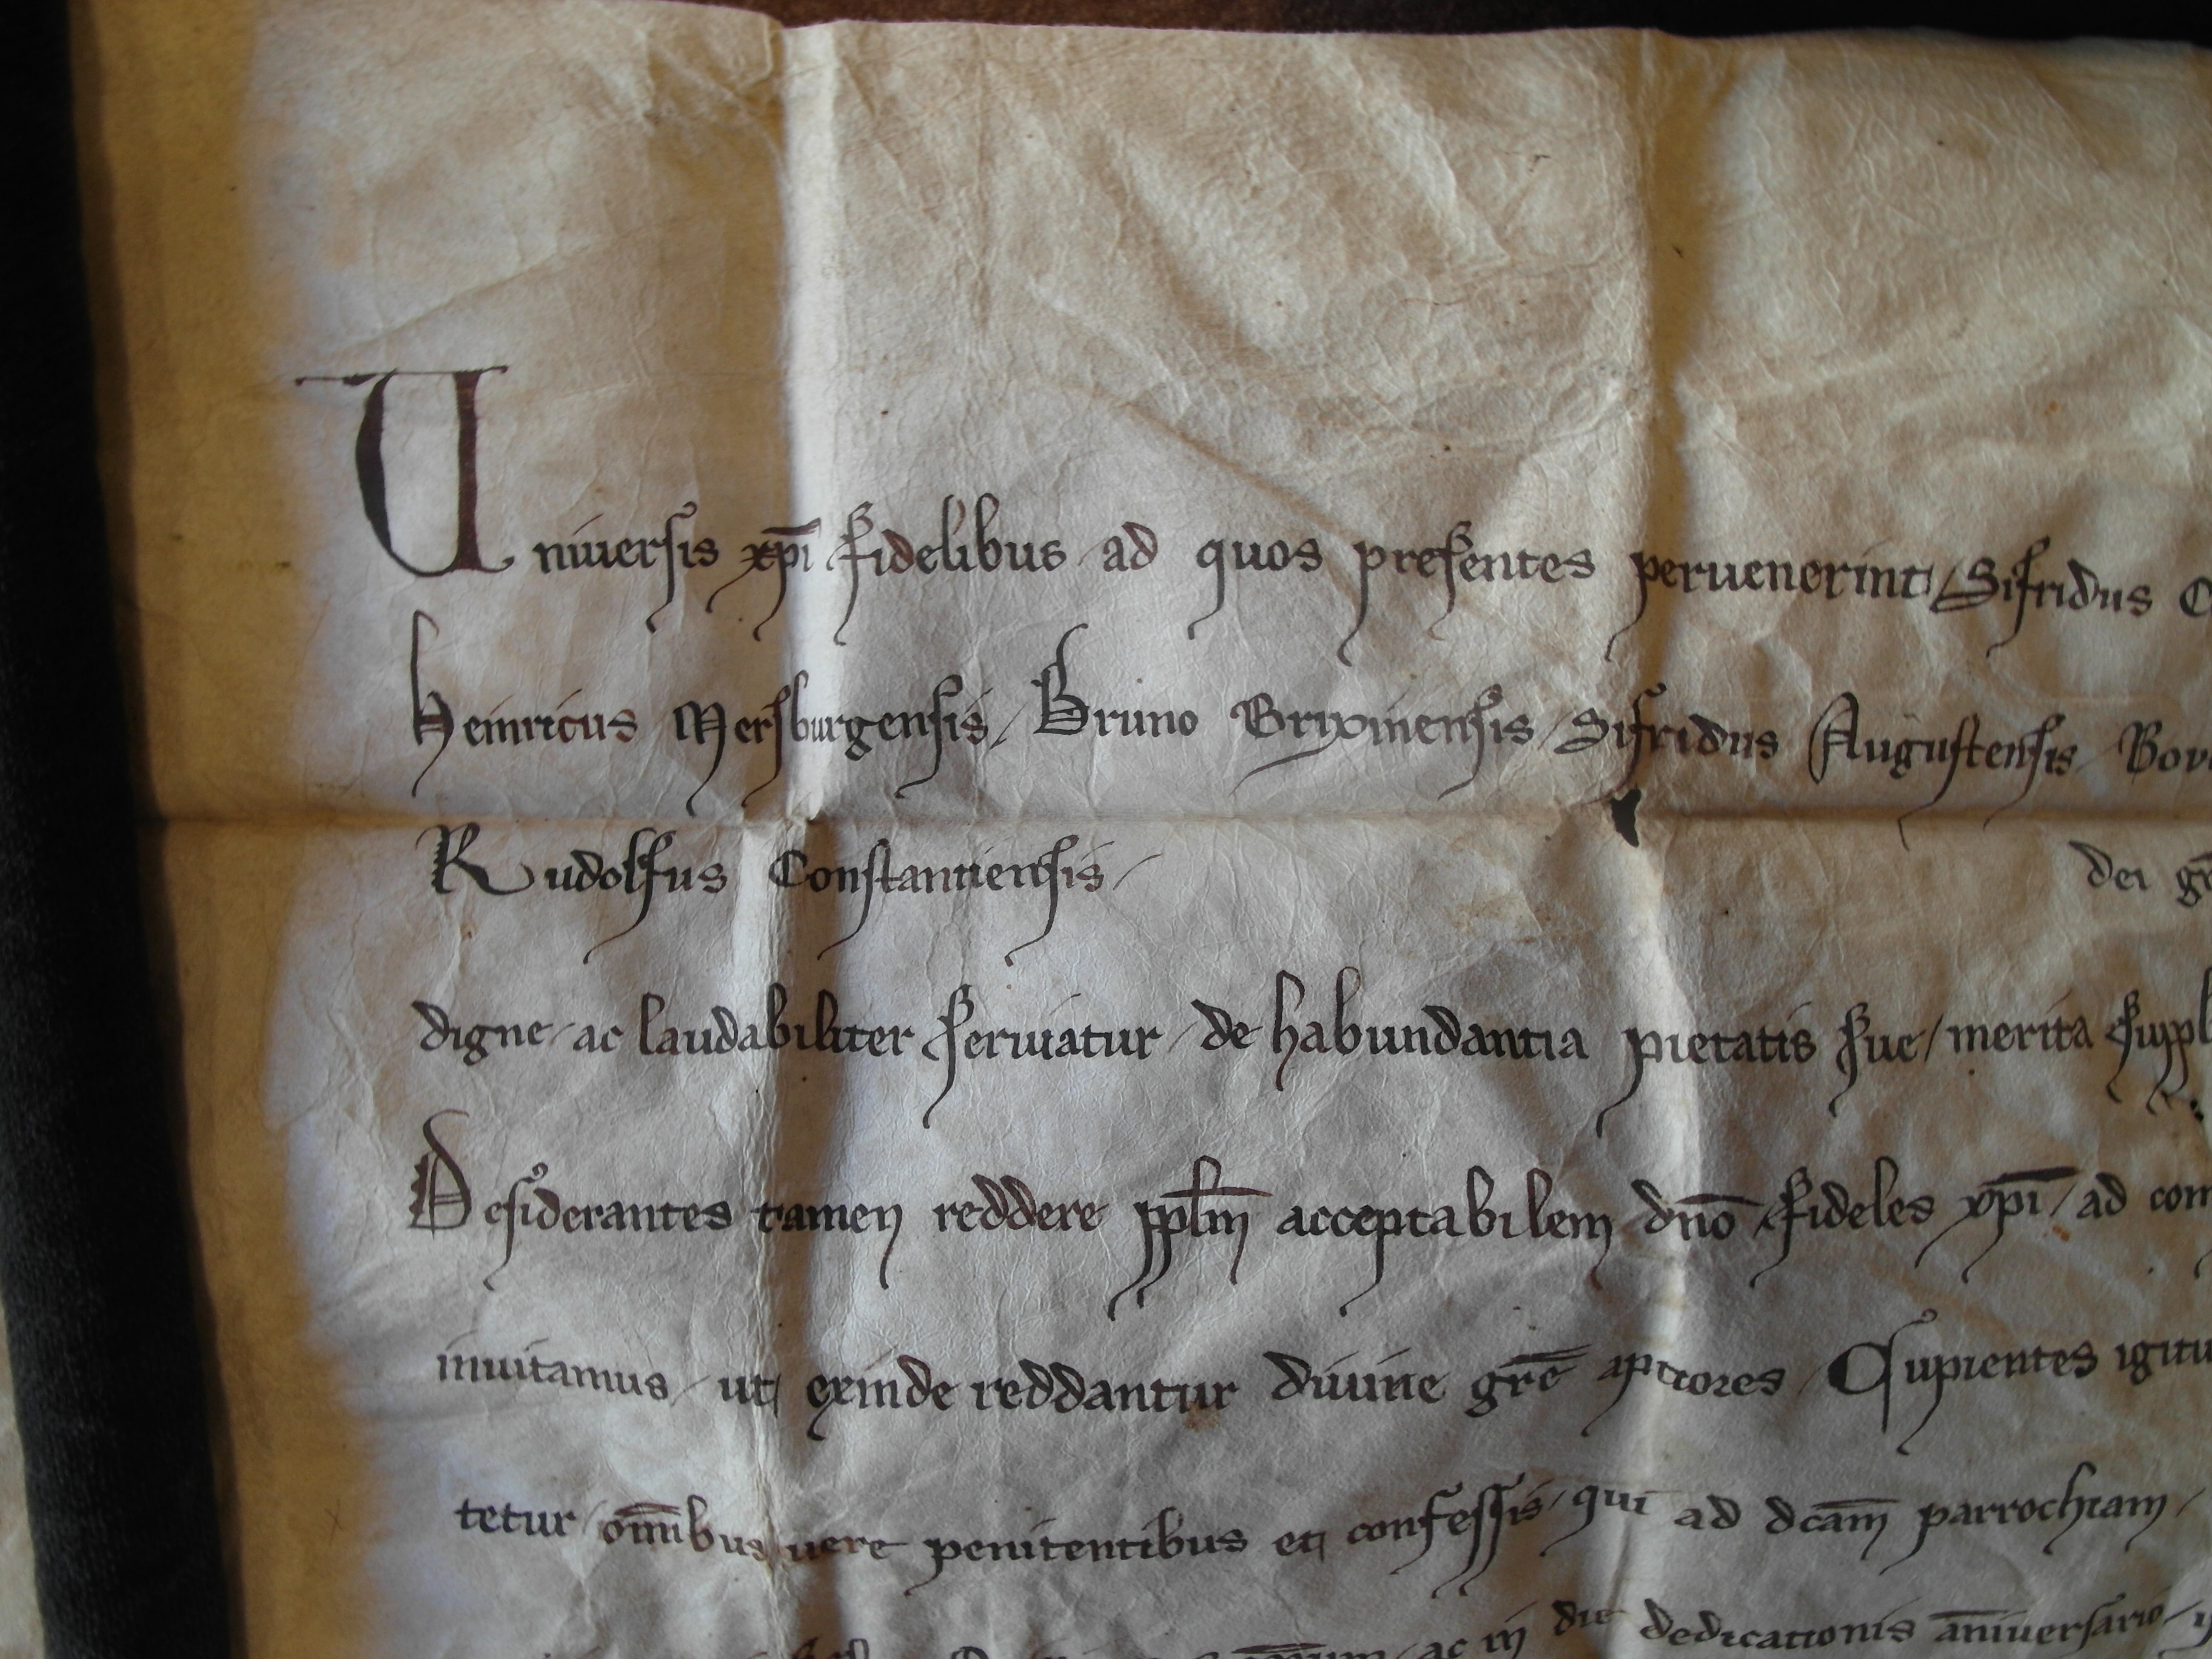 Uniuersis xp̄i fidelibus ad quos presentes peruenerint / Sifridus
Heinricus Mersburgensis / Bruno Brixinensis / Sifridus Augustensis
Rudolfus Constantiensis / dei
digne / ac laudabiliter seruiatur / de habundantia pietatis sue / merita suppl
Desiderantes tamen reddere pplm̄ acceptabilem dn̄o fideles xp̄i / ad com
inuitamus / ut exinde reddantur diuine gr̄e aptiores / Cupientes igitu
tetur / om̄ibus uere penitentibus et confessis / qui ad dcām parrochiam /
ac in die dedicationis an̄iuersario /